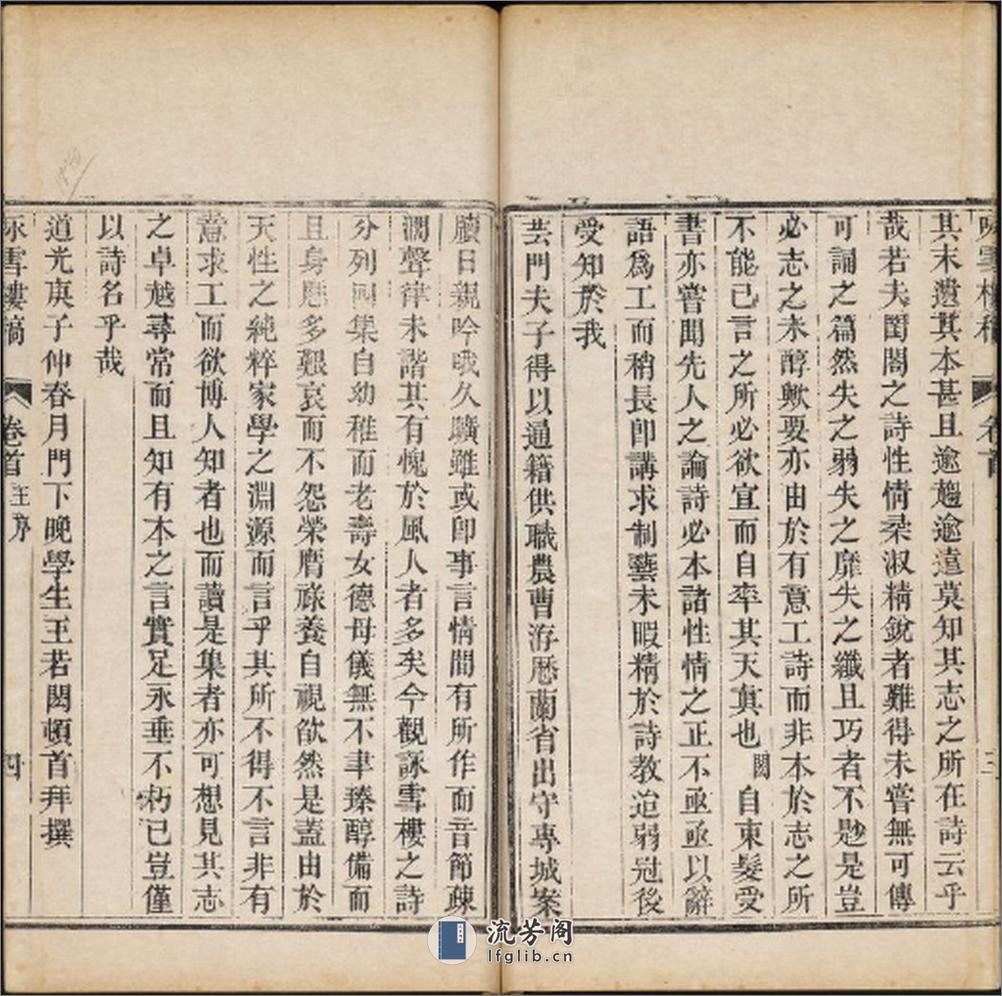 其末遺其本甚且逾趨逾遠莫知其志之所在詩云乎
哉若夫閨閣之詩性情柔淑精銳者難得未嘗無可傳
可誦之篇然失之弱失之靡失之纖且巧者不尠是豈
必志之未醇歟要亦由於有意工詩而非本於志之所
不能已言之所必欲宣而自率其天真也閎自束髮受
書亦嘗聞先人之論詩必本諸性情之正不亟亟以辭
語爲工而稍長卽講求制藝未暇精於詩教迨弱冠後
受知於我
芸門夫子得以通籍供職農曹洊歷蘭省出守專城案
牘日親吟哦久曠雖或卽事言情間有所作而音節疎
濶聲律未諧其有愧於風人者多矣今觀詠雪樓之詩
分列四集自幼稚而老壽女德母儀無不聿臻醇備而
且身歷多艱哀而不怨榮膺祿養自視欿然是蓋由於
天性之純粹家學之淵源而言乎其所不得不言非有
意求工而欲博人知者也而讀是集者亦可想見其志
之卓越尋常而且知有本之言實足永垂不朽已豈僅
以詩名乎哉
道光庚子仲春月門下晚學生王若閎頓首拜撰
詠雪樓稿 卷首 王序 四
流芳阁
lfglib.cn